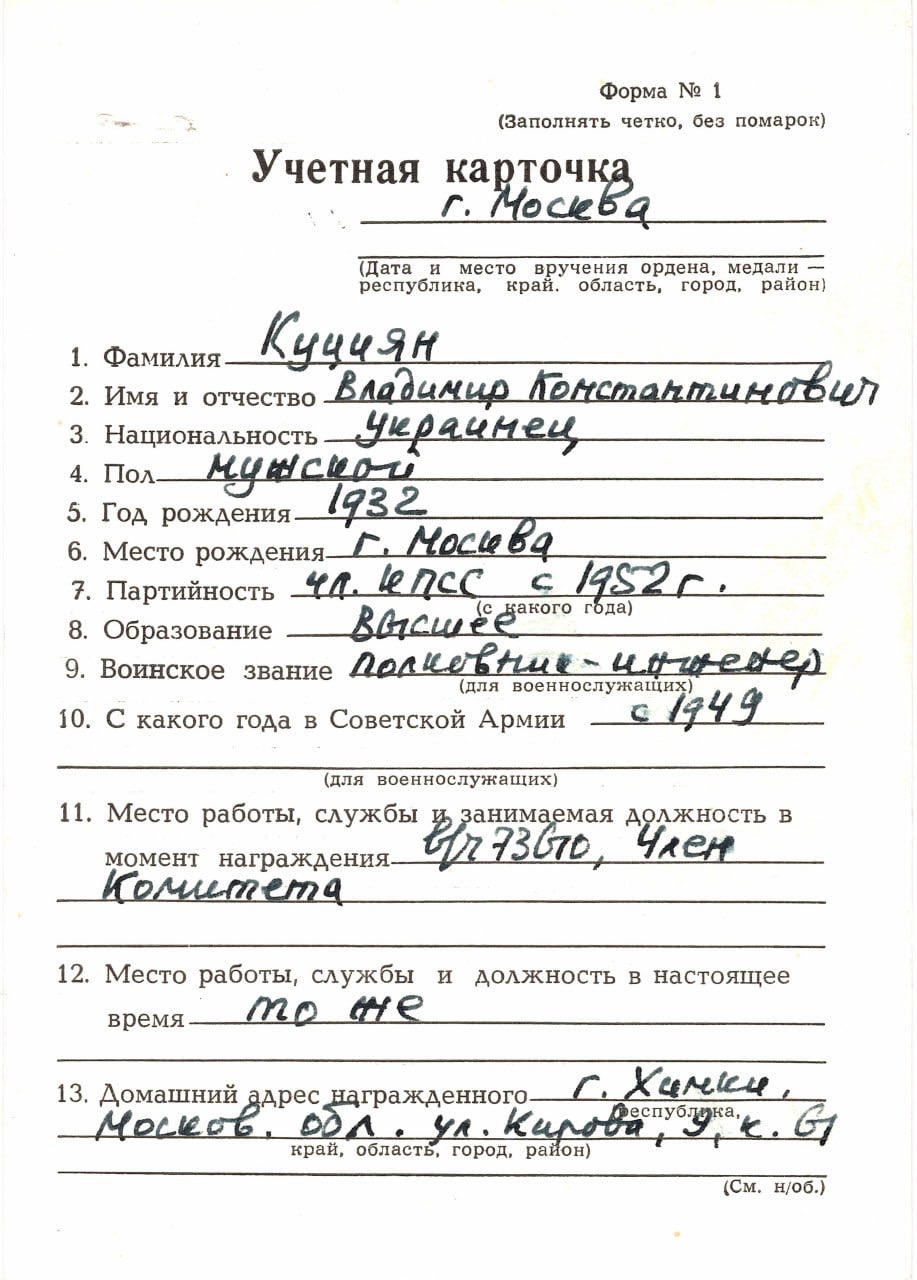 Форма № 1
(Заполнять четко, без помарок)
Учетная карточка
г. Москва
(Дата и место вручения ордена, медали —
республика, край. область, город, район)
1. Фамилия Куциян
2. Имя и отчество Владимир Константинович
3. Национальность украинец
4. Пол мужской
5. Год рождения 1932
6. Место рождения г. Москва
7. Партийность чл. КПСС с 1952 г.
(с какого года)
8. Образование высшее
9. Воинское звание полковник-инженер
(для военнослужащих)
10. С какого года в Советской Армии с 1949
(для военнослужащих)
11. Место работы, службы и занимаемая должность в
момент награждения в/ч Член
Комитета
12. Место работы, службы и должность в настоящее
время то же
13. Домашний адрес награжденного г. Химки,
(республика,
Москов. обл. ул. Кирова, 9, к. 61
край, область, город, район)
(См. н/об.)